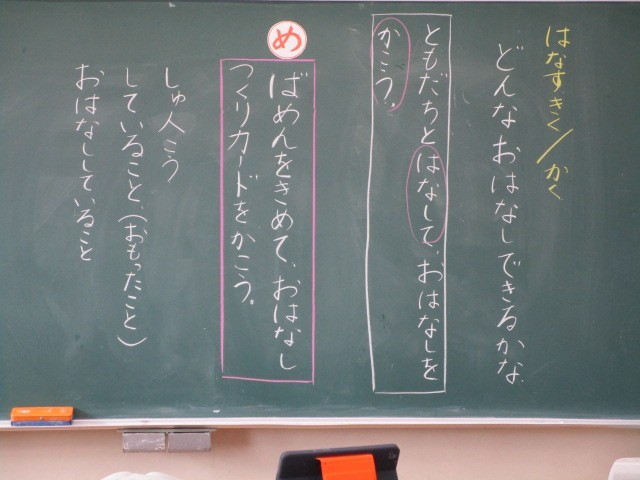 はなすきく/かく
どんなおはなしできるかな
ともだちとはなして、おはなしを
かこう。
め
ばめんをきめて、おはなし
つくりカードをかこう。
しゅ人こう
していること、(おもったこと)
おはなししていること